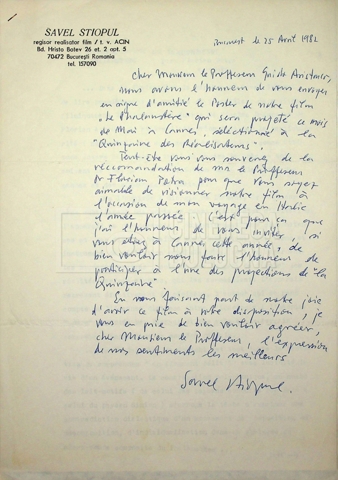 SAVEL STIOPUL
regisor realisator film / t. v. ACIN
Bd. Hristo Botev 26 et. 2 apt. 5
70472 București Romania
tel. 157090
Bucarest le 25 Avril 1982
Cher Monsieur le Professeur Guido Aristarco,
nous avons l'honneur de vous envoyer
en signe d'amitié le Poster de notre film
qui sera projeté ce mois
de Mai à Cannes, séléctionné à la
"Quinzaine des Réalisateurs".
Peut-être vous vous souvenez de la
reccomandation de mr le Proffesseur
Dr Florian Potra pour que vous soyez
aimable de visionner notre film à
l'occasion de mon voyage en Italie
l'année passée. C'est pour ça que
j'ai l'honneur de vous inviter, si
vous étiez à Cannes cette année, de
bien vouloir nous faire l'honneur de
participer à l'une des projections de "la
Quinzaine".
En vous faisant part de notre joie
d'avoir ce film à votre disposition, je
vous en prie de bien vouloir agréer,
cher Monsieur le Proffesseur, l'expression
de nos sentiments les meilleurs
Savel Stiopul